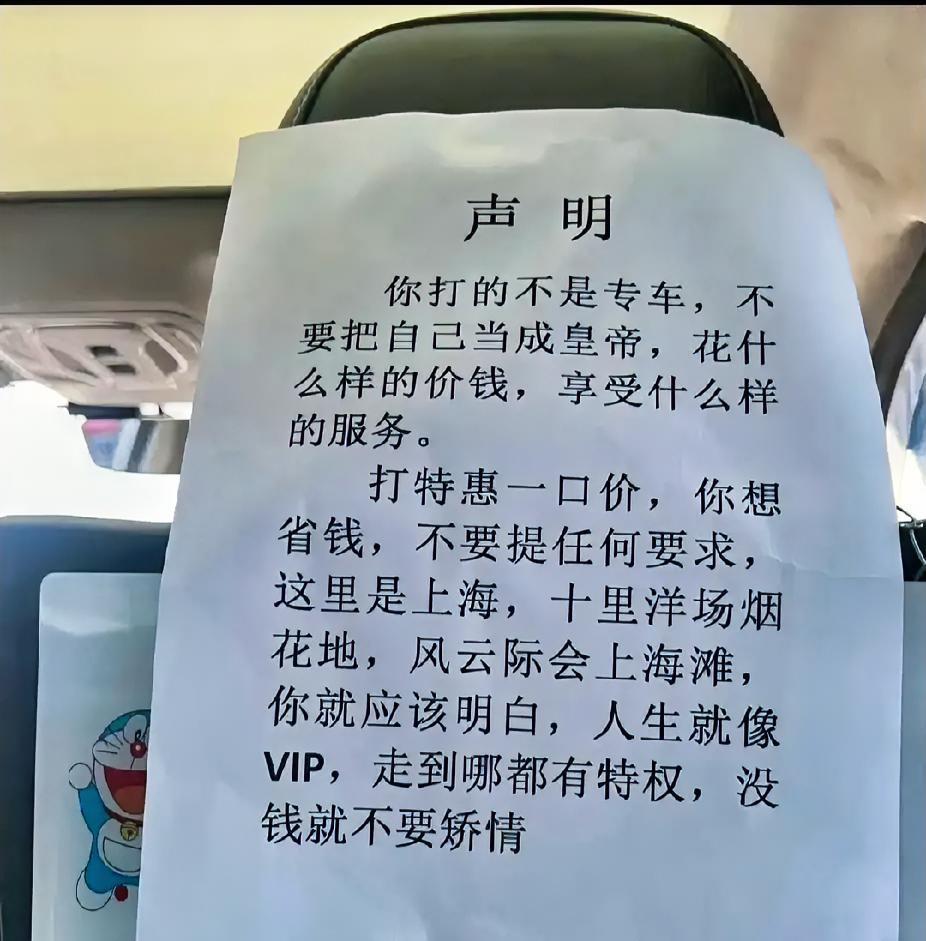 声 明
你打的不是专车，不
要把自己当成皇帝，花什
么样的价钱，享受什么样
的服务。
打特惠一口价，你想
省钱，不要提任何要求，
这里是上海，十里洋场烟
花地，风云际会上海滩，
你就应该明白，人生就像
VIP，走到哪都有特权，没
钱就不要矫情